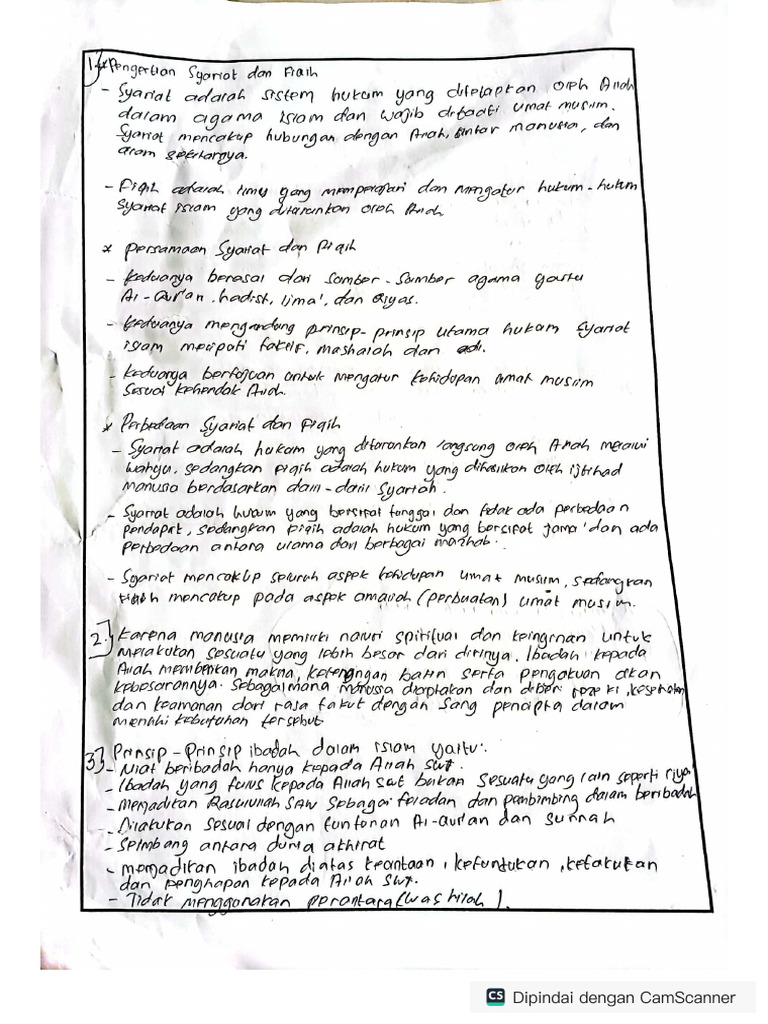 1. * Pengertian Syariat dan Fiqih
- Syariat adalah sistem hukum yang ditetapkan oleh Allah
dalam agama Islam dan wajib ditaati umat muslim.
Syariat mencakup hubungan dengan Allah, antar manusia, dan
alam sekitarnya.
- Fiqih adalah ilmu yang mempelajari dan mengatur hukum-hukum
syariat islam yang diturunkan oleh Allah
* Persamaan Syariat dan Fiqih
- Keduanya berasal dari sumber-sumber agama yaitu
Al-Qur'an, hadist, Ijma', dan Qiyas.
- Keduanya mengandung prinsip-prinsip utama hukum syariat
islam meliputi taklif, mashalah dan adl.
- Keduanya bertujuan untuk mengatur kehidupan umat muslim
sesuai kehendak Allah.
* Perbedaan Syariat dan Fiqih
- Syariat adalah hukum yang diturunkan langsung oleh Allah melalui
wahyu. sedangkan fiqih adalah hukum yang dihasilkan oleh ijtihad
manusia berdasarkan dalil-dalil syariah.
- Syariat adalah hukum yang bersifat tunggal dan tidak ada perbedaan
pendapat, sedangkan fiqih adalah hukum yang bersifat jama' dan ada
perbedaan antara ulama dari berbagai mazhab.
- Syariat mencakup seluruh aspek kehidupan umat muslim, sedangkan
fiqih mencakup pada aspek amaliah (perbuatan) umat muslim.
2. Karena manusia memiliki naluri spiritual dan keinginan untuk
melakukan sesuatu yang lebih besar dari dirinya. Ibadah kepada
Allah memberikan makna, ketenangan batin serta pengakuan akan
kebesarannya. sebagaimana manusia diciptakan dan diberi rezeki, kesehatan
dan keamanan dari rasa takut dengan sang pencipta dalam
memenuhi kebutuhan tersebut.
3. Prinsip-Prinsip ibadah dalam islam yaitu:
- Niat beribadah hanya kepada Allah swt.
- Ibadah yang tulus kepada Allah swt bukan sesuatu yang lain seperti riya'
- Menjadikan Rasulullah SAW sebagai teladan dan pembimbing dalam beribadah
- Dilakukan sesuai dengan tuntunan Al-Qur'an dan sunnah
- Seimbang antara dunia akhirat
- menjadikan ibadah diatas kecintaan, ketundukan, ketakutan
dan penghapan kepada Allah swt.
- Tidak menggunakan perantara (washilah).
CS Dipindai dengan CamScanner